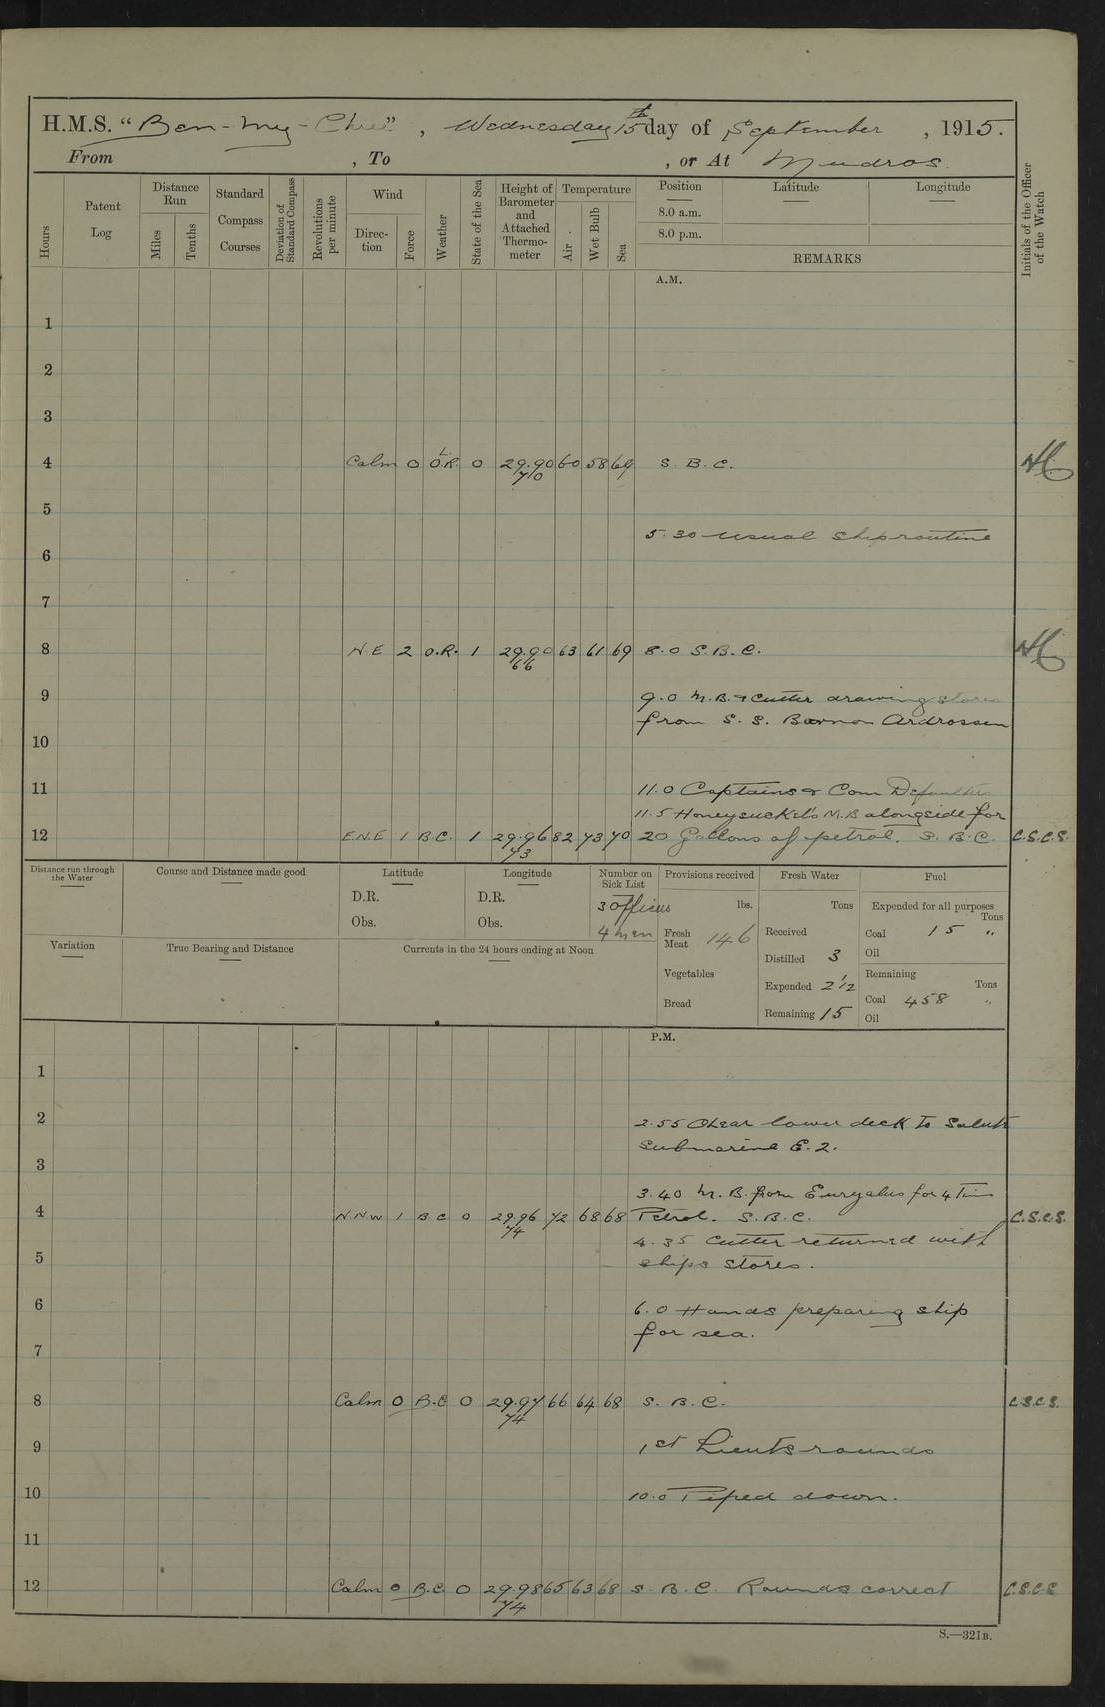 H.M.S. "Ben-my-Chree", Wednesday 15th day of September, 1915.
From , To , or At Mudros.
Hours
Patent Log
Distance Run
Miles
Tenths
Standard Compass Courses
Deviation of Standard Compass
Revolutions per minute
Wind
Direction
Force
Weather
State of the Sea
Height of Barometer and Attached Thermometer
Temperature
Air.
Wet Bulb
Sea
Position
8.0 a.m.
8.0 p.m.
Latitude
Longitude
REMARKS
Initials of the Officer of the Watch
A.M.
1
2
3
4 Calm 0 O.R. 0 29.90 60 58 69 S. B. C.
70
5
5.30 Usual Ship routine
6
7
8 N.E 2 O.R. 1 29.90 63 61 69 8.0 S.B.C.
66
9 9.0 M.B. & Cutter drawing stores
from S. S. Ardrossan
10
11 11.0 Captains & Com Defaulters
11.5 Honeysuckel's M.B alongside for
12 E.N.E 1 B.C. 1 29.96 82 73 70 20 Gallons of petrol. S. B. C. C.S.C.S.
73
Distance run through the Water
Course and Distance made good
Latitude
D.R.
Obs.
Longitude
D.R.
Obs.
Number on Sick List
3 Officers
4 men
Provisions received
lbs.
Fresh Meat 146
Vegetables
Bread
Fresh Water
Tons
Received
Distilled 3
Expended 2 1/2
Remaining 15
Fuel
Expended for all purposes
Tons
Coal 15 "
Oil
Remaining
Tons
Coal 458 "
Oil
Variation
True Bearing and Distance
Currents in the 24 hours ending at Noon
P.M.
1
2 2.55 Clear lower deck to Salute
Submarine E.2.
3
3.40 M. B. from Euryalus for 4 Tins
4 N.N.W 1 B C 0 29.96 72 68 68 Petrol. S.B.C. C.S.C.S.
74
4.35 Cutter returned with
5 ships stores.
6 6.0 Hands preparing ship
for sea.
7
8 Calm 0 B.C 0 29.97 66 64 68 S. B. C. C.S.C.S.
74
9 1st Lieuts rounds
10 10.0 Piped down.
11
12 Calm 0 B.C. 0 29.98 65 63 68 S. B. C. Rounds correct C.S.C.S
74
S.—321B.